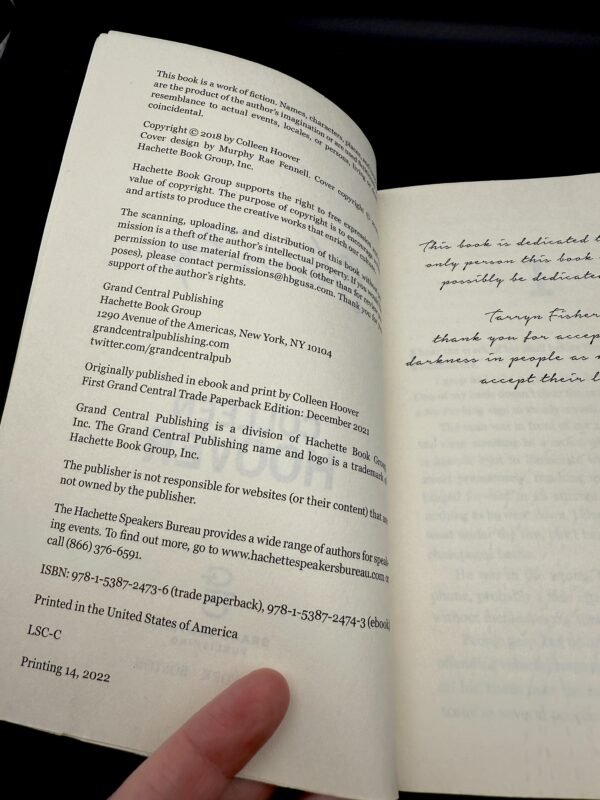 This book is a work of fiction. Names, characters, places, and
are the product of the author's imagination or are used
resemblance to actual events, locales, or persons, living or
coincidental.
Copyright © 2018 by Colleen Hoover
Cover design by Murphy Rae Fennell. Cover copyright ©
Hachette Book Group, Inc.
Hachette Book Group supports the right to free expression
value of copyright. The purpose of copyright is to encourage
and artists to produce the creative works that enrich our
The scanning, uploading, and distribution of this book without
mission is a theft of the author's intellectual property. If you
permission to use material from the book (other than for review
poses), please contact permissions@hbgusa.com. Thank you for
support of the author's rights.
Grand Central Publishing
Hachette Book Group
1290 Avenue of the Americas, New York, NY 10104
grandcentralpublishing.com
twitter.com/grandcentralpub
Originally published in ebook and print by Colleen Hoover
First Grand Central Trade Paperback Edition: December 2021
Grand Central Publishing is a division of Hachette Book Group,
Inc. The Grand Central Publishing name and logo is a trademark of
Hachette Book Group, Inc.
The publisher is not responsible for websites (or their content) that are
not owned by the publisher.
The Hachette Speakers Bureau provides a wide range of authors for speak-
ing events. To find out more, go to www.hachettespeakersbureau.com or
call (866) 376-6591.
ISBN: 978-1-5387-2473-6 (trade paperback), 978-1-5387-2474-3 (ebook)
Printed in the United States of America
LSC-C
Printing 14, 2022
This book is dedicated t
only person this book
possibly be dedicate
Tarryn Fisher
thank you for accep
darkness in people as
accept their l